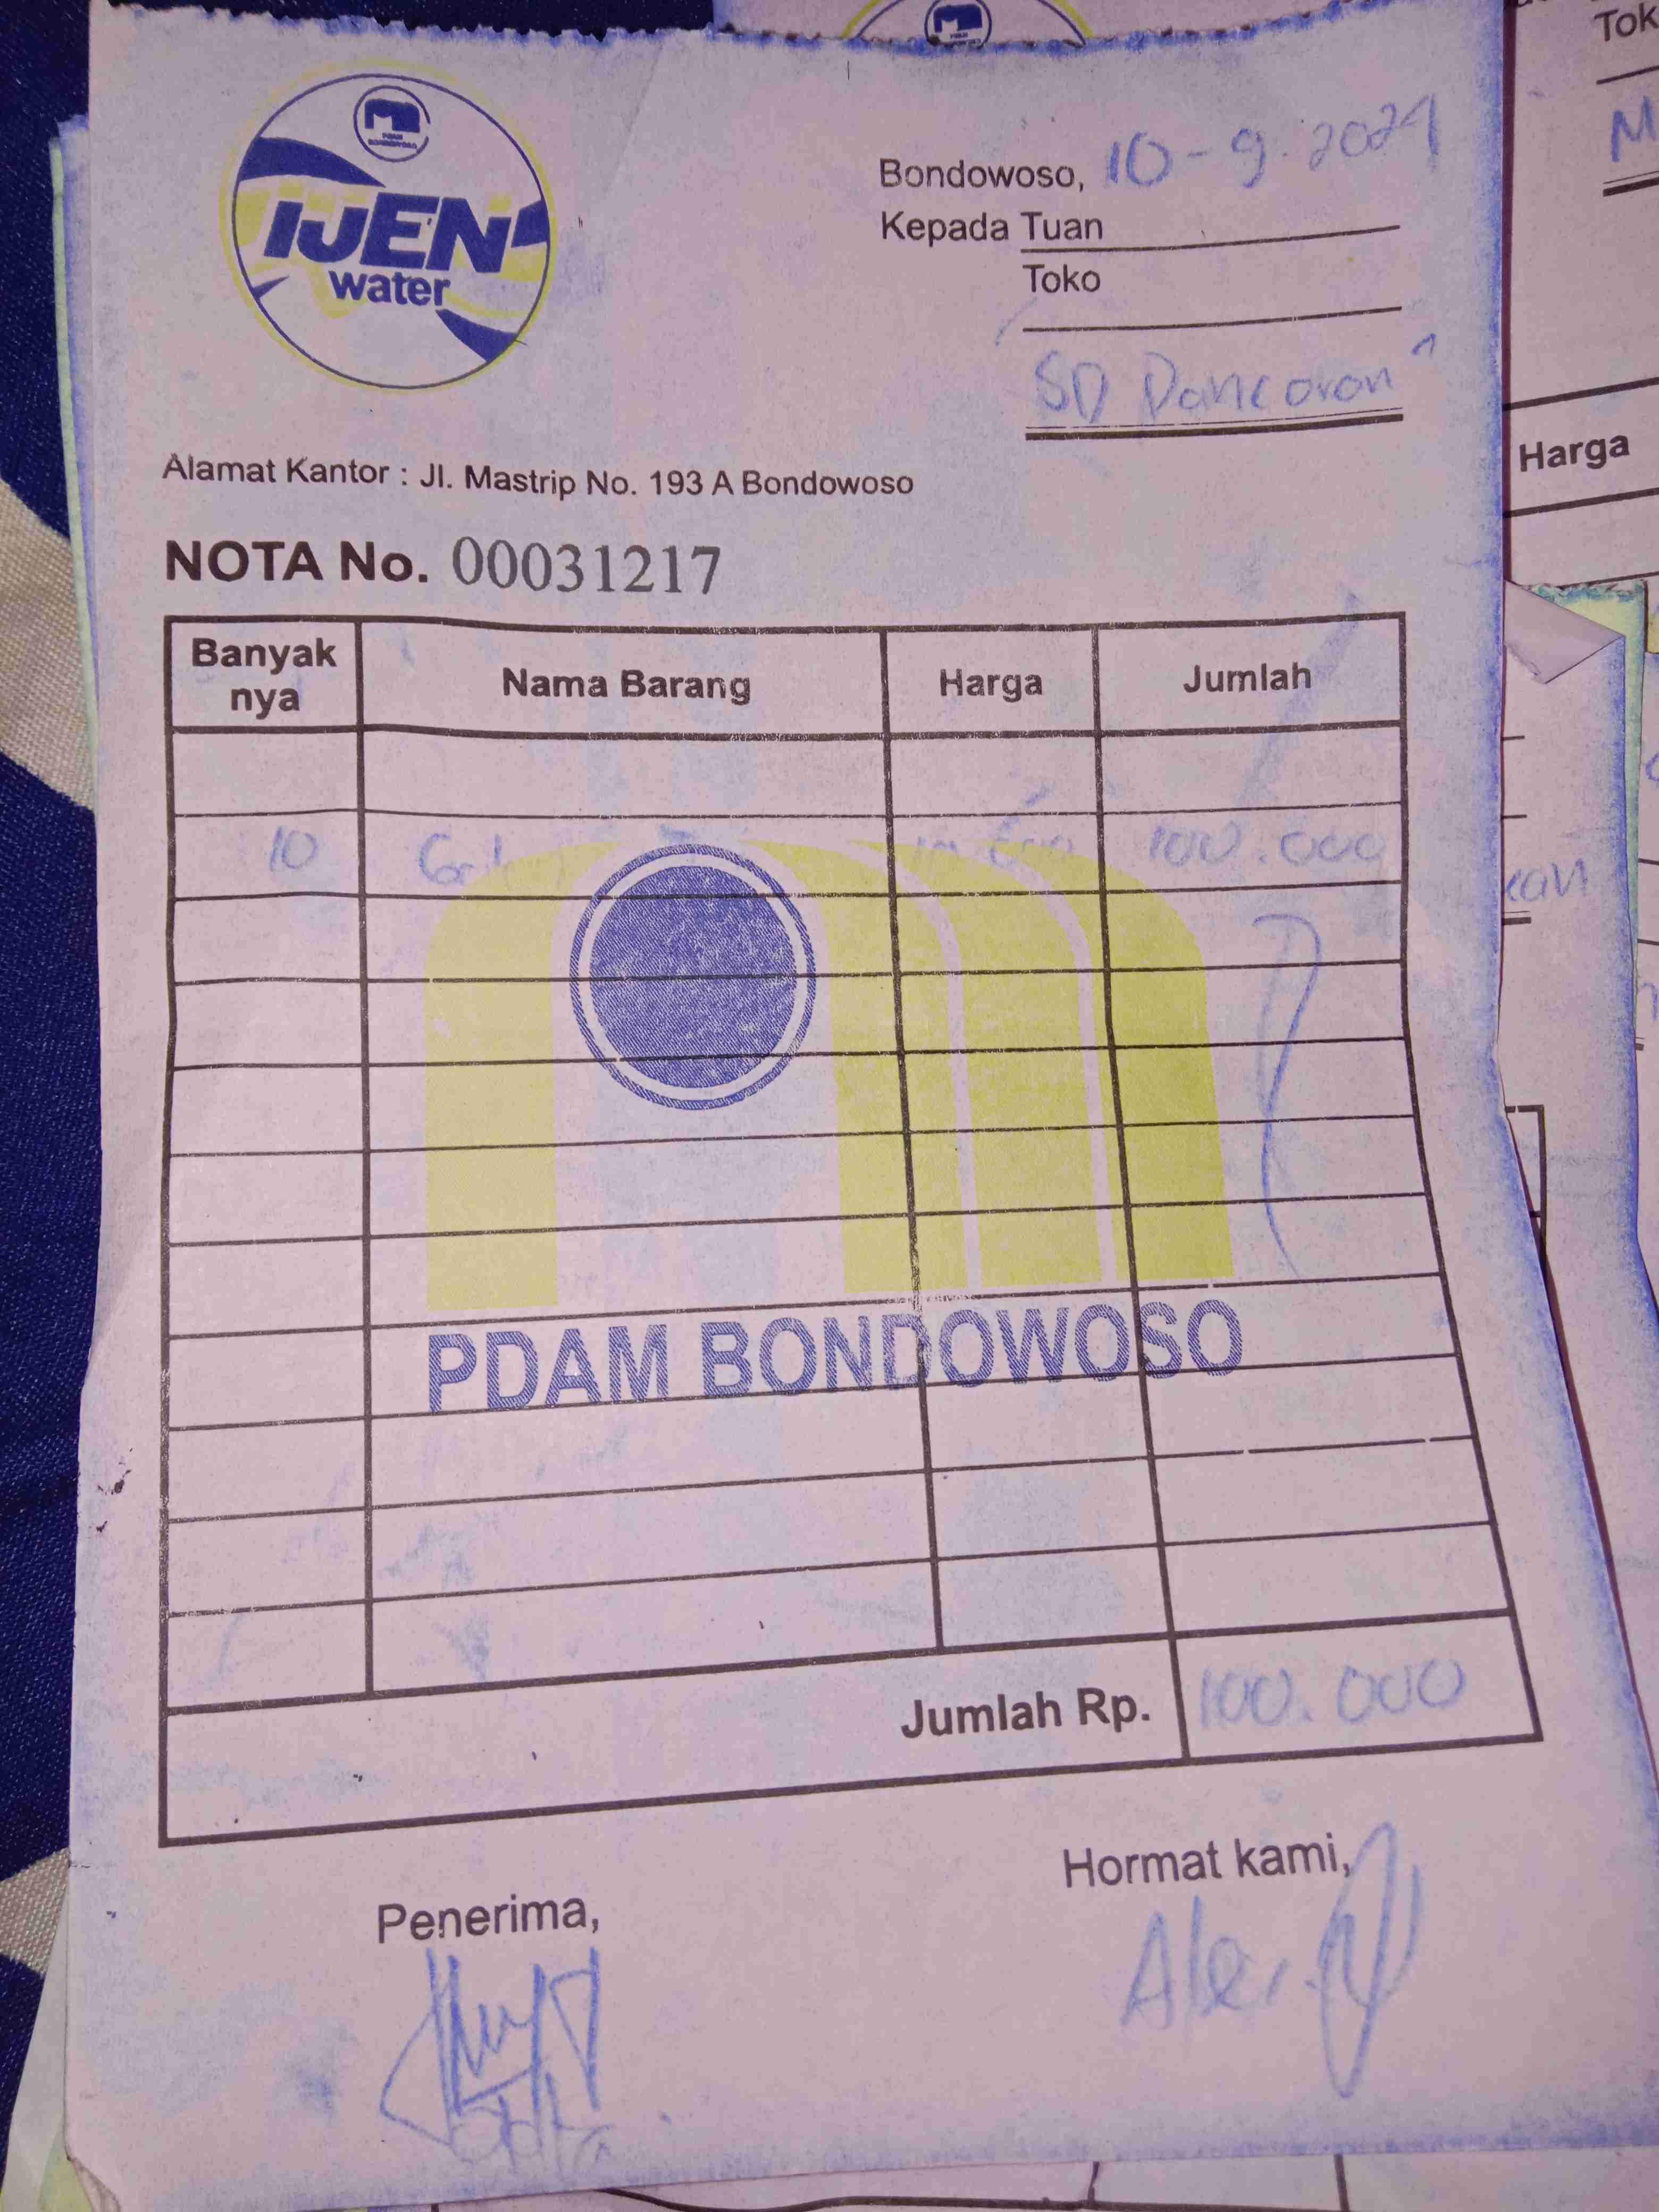 IJEN
water
Bondowoso, 10-9-2024
Kepada Tuan
Toko
SD Dancoran 1
Alamat Kantor : Jl. Mastrip No. 193 A Bondowoso
NOTA No. 00031217
Banyak nya Nama Barang Harga Jumlah
10 Gal 100.000
PDAM BONDOWOSO
Jumlah Rp. 100.000
Penerima,
Hormat kami,
Tok
M
Harga
kan